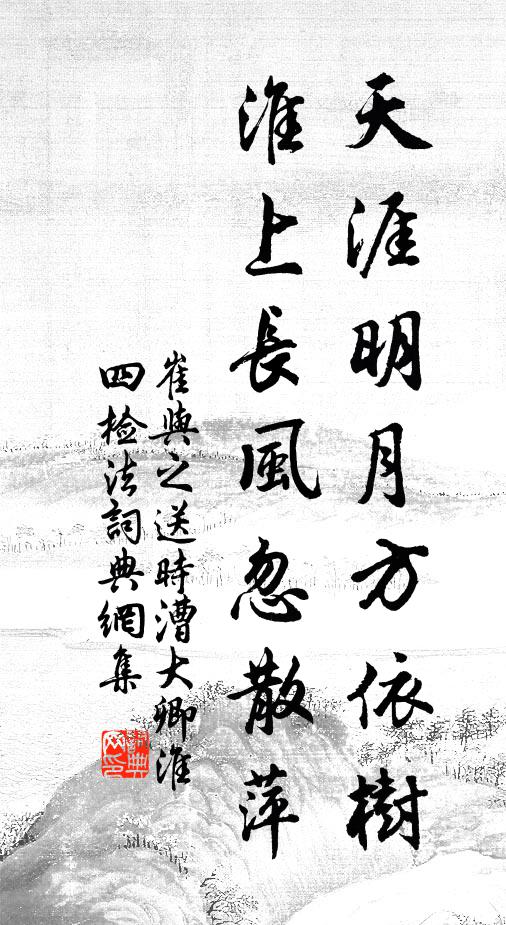 天涯明月方依樹
淮上長風忽散萍
崔與之送時漕大卿淮
四檢法詞典網集